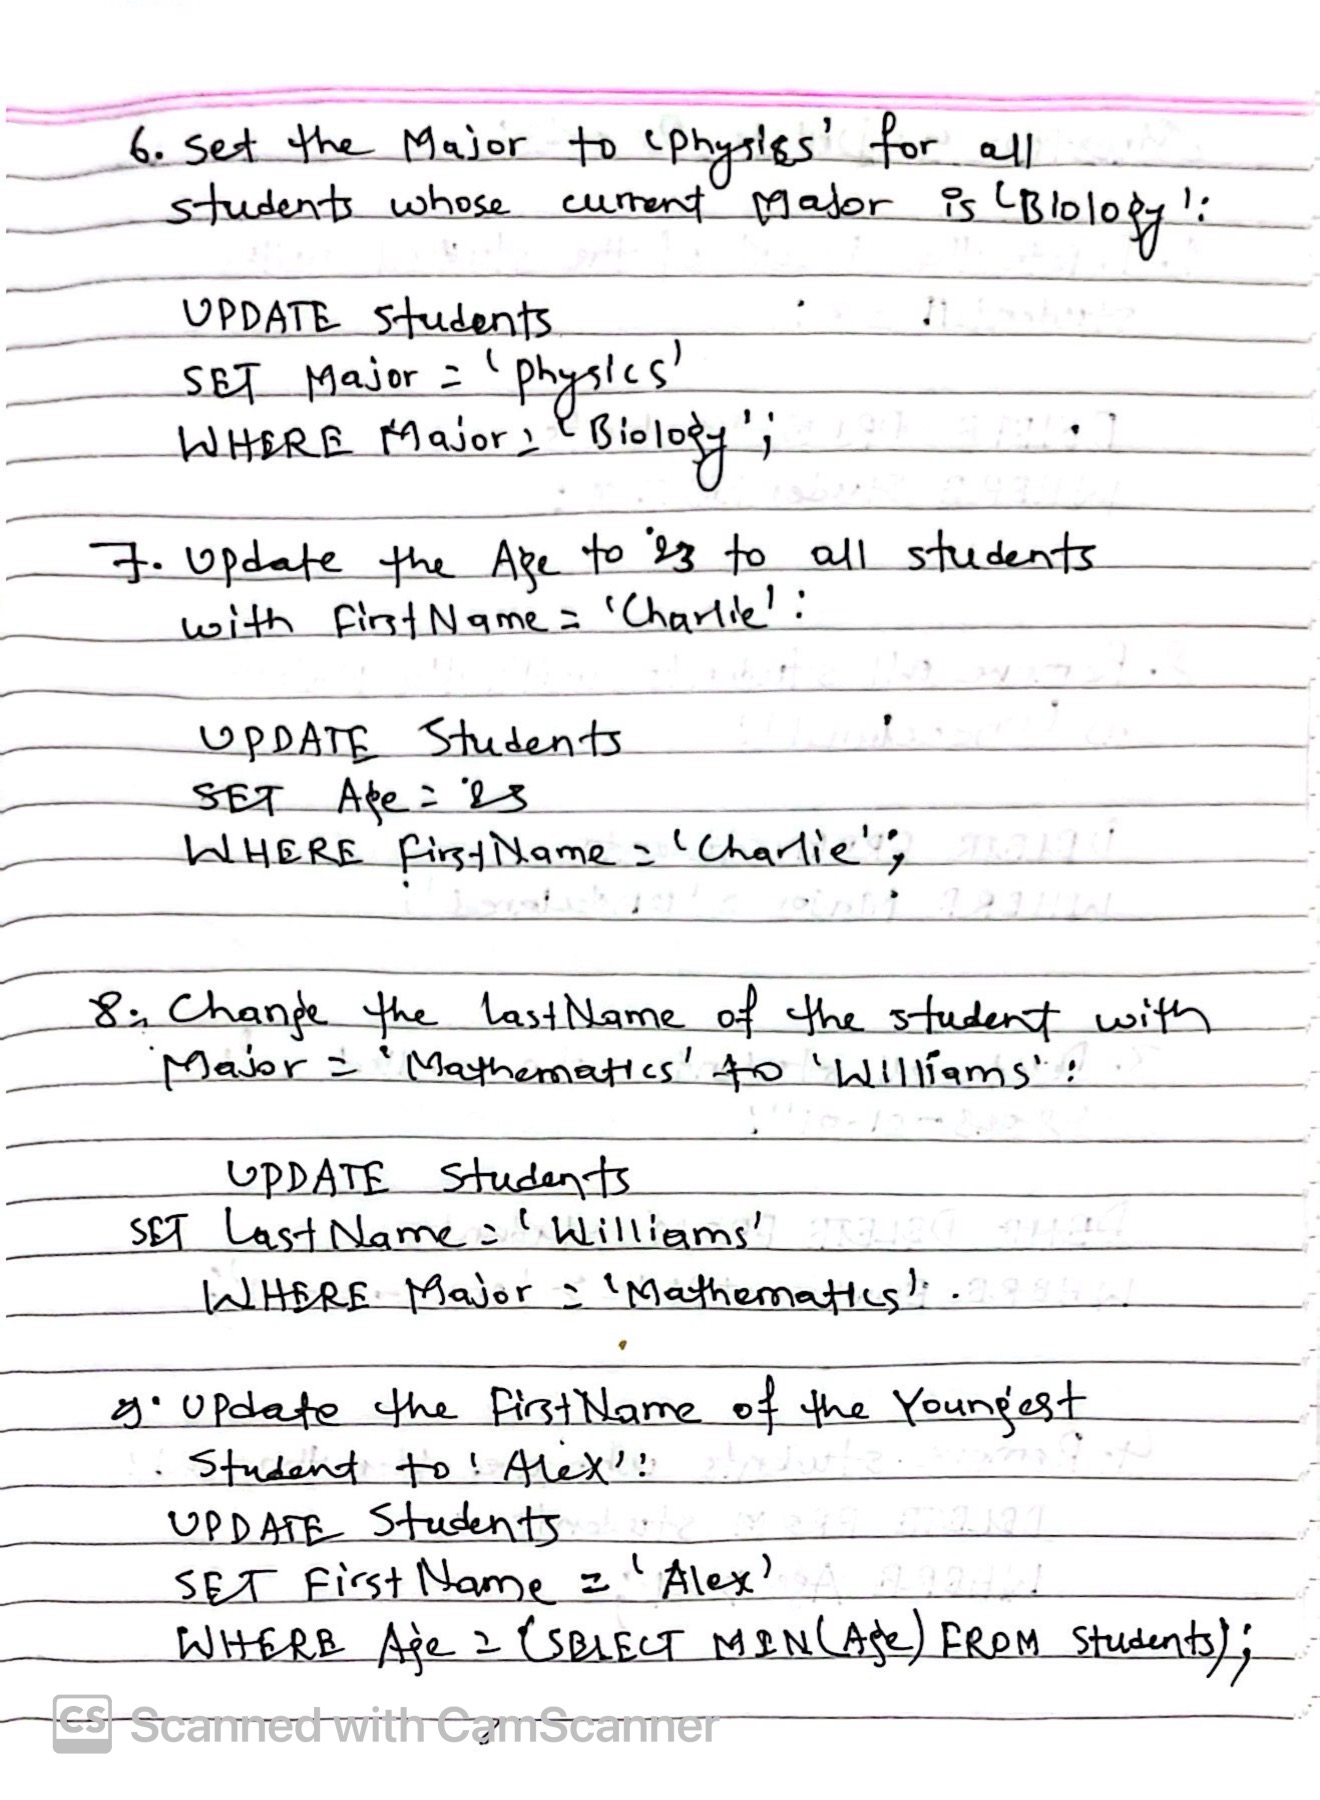 6. Set the Major to 'Physics' for all
students whose current Major is 'Biology':
UPDATE students
SET Major = 'Physics'
WHERE Major = 'Biology';
7. Update the Age to 23 to all students
with FirstName = 'Charlie':
UPDATE Students
SET Age = 23
WHERE FirstName = 'Charlie';
8. Change the lastName of the student with
Major = 'Mathematics' to 'Williams':
UPDATE Students
SET LastName = 'Williams'
WHERE Major = 'Mathematics'.
9. Update the FirstName of the Youngest
Student to 'Alex':
UPDATE Students
SET FirstName = 'Alex'
WHERE Age = (SELECT MIN(Age) FROM Students);
CS Scanned with CamScanner